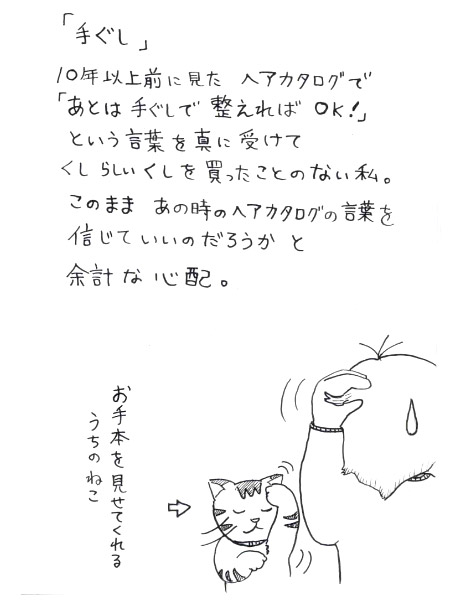 「手ぐし」
10年以上前に見た ヘアカタログで
「あとは 手ぐしで 整えれば OK!」
という言葉を真に受けて
くしらしいくしを買ったことのない私。
このまま あの時のヘアカタログの言葉を
信じていいのだろうか と
余計な心配。
お手本を見せてくれる
うちのねこ